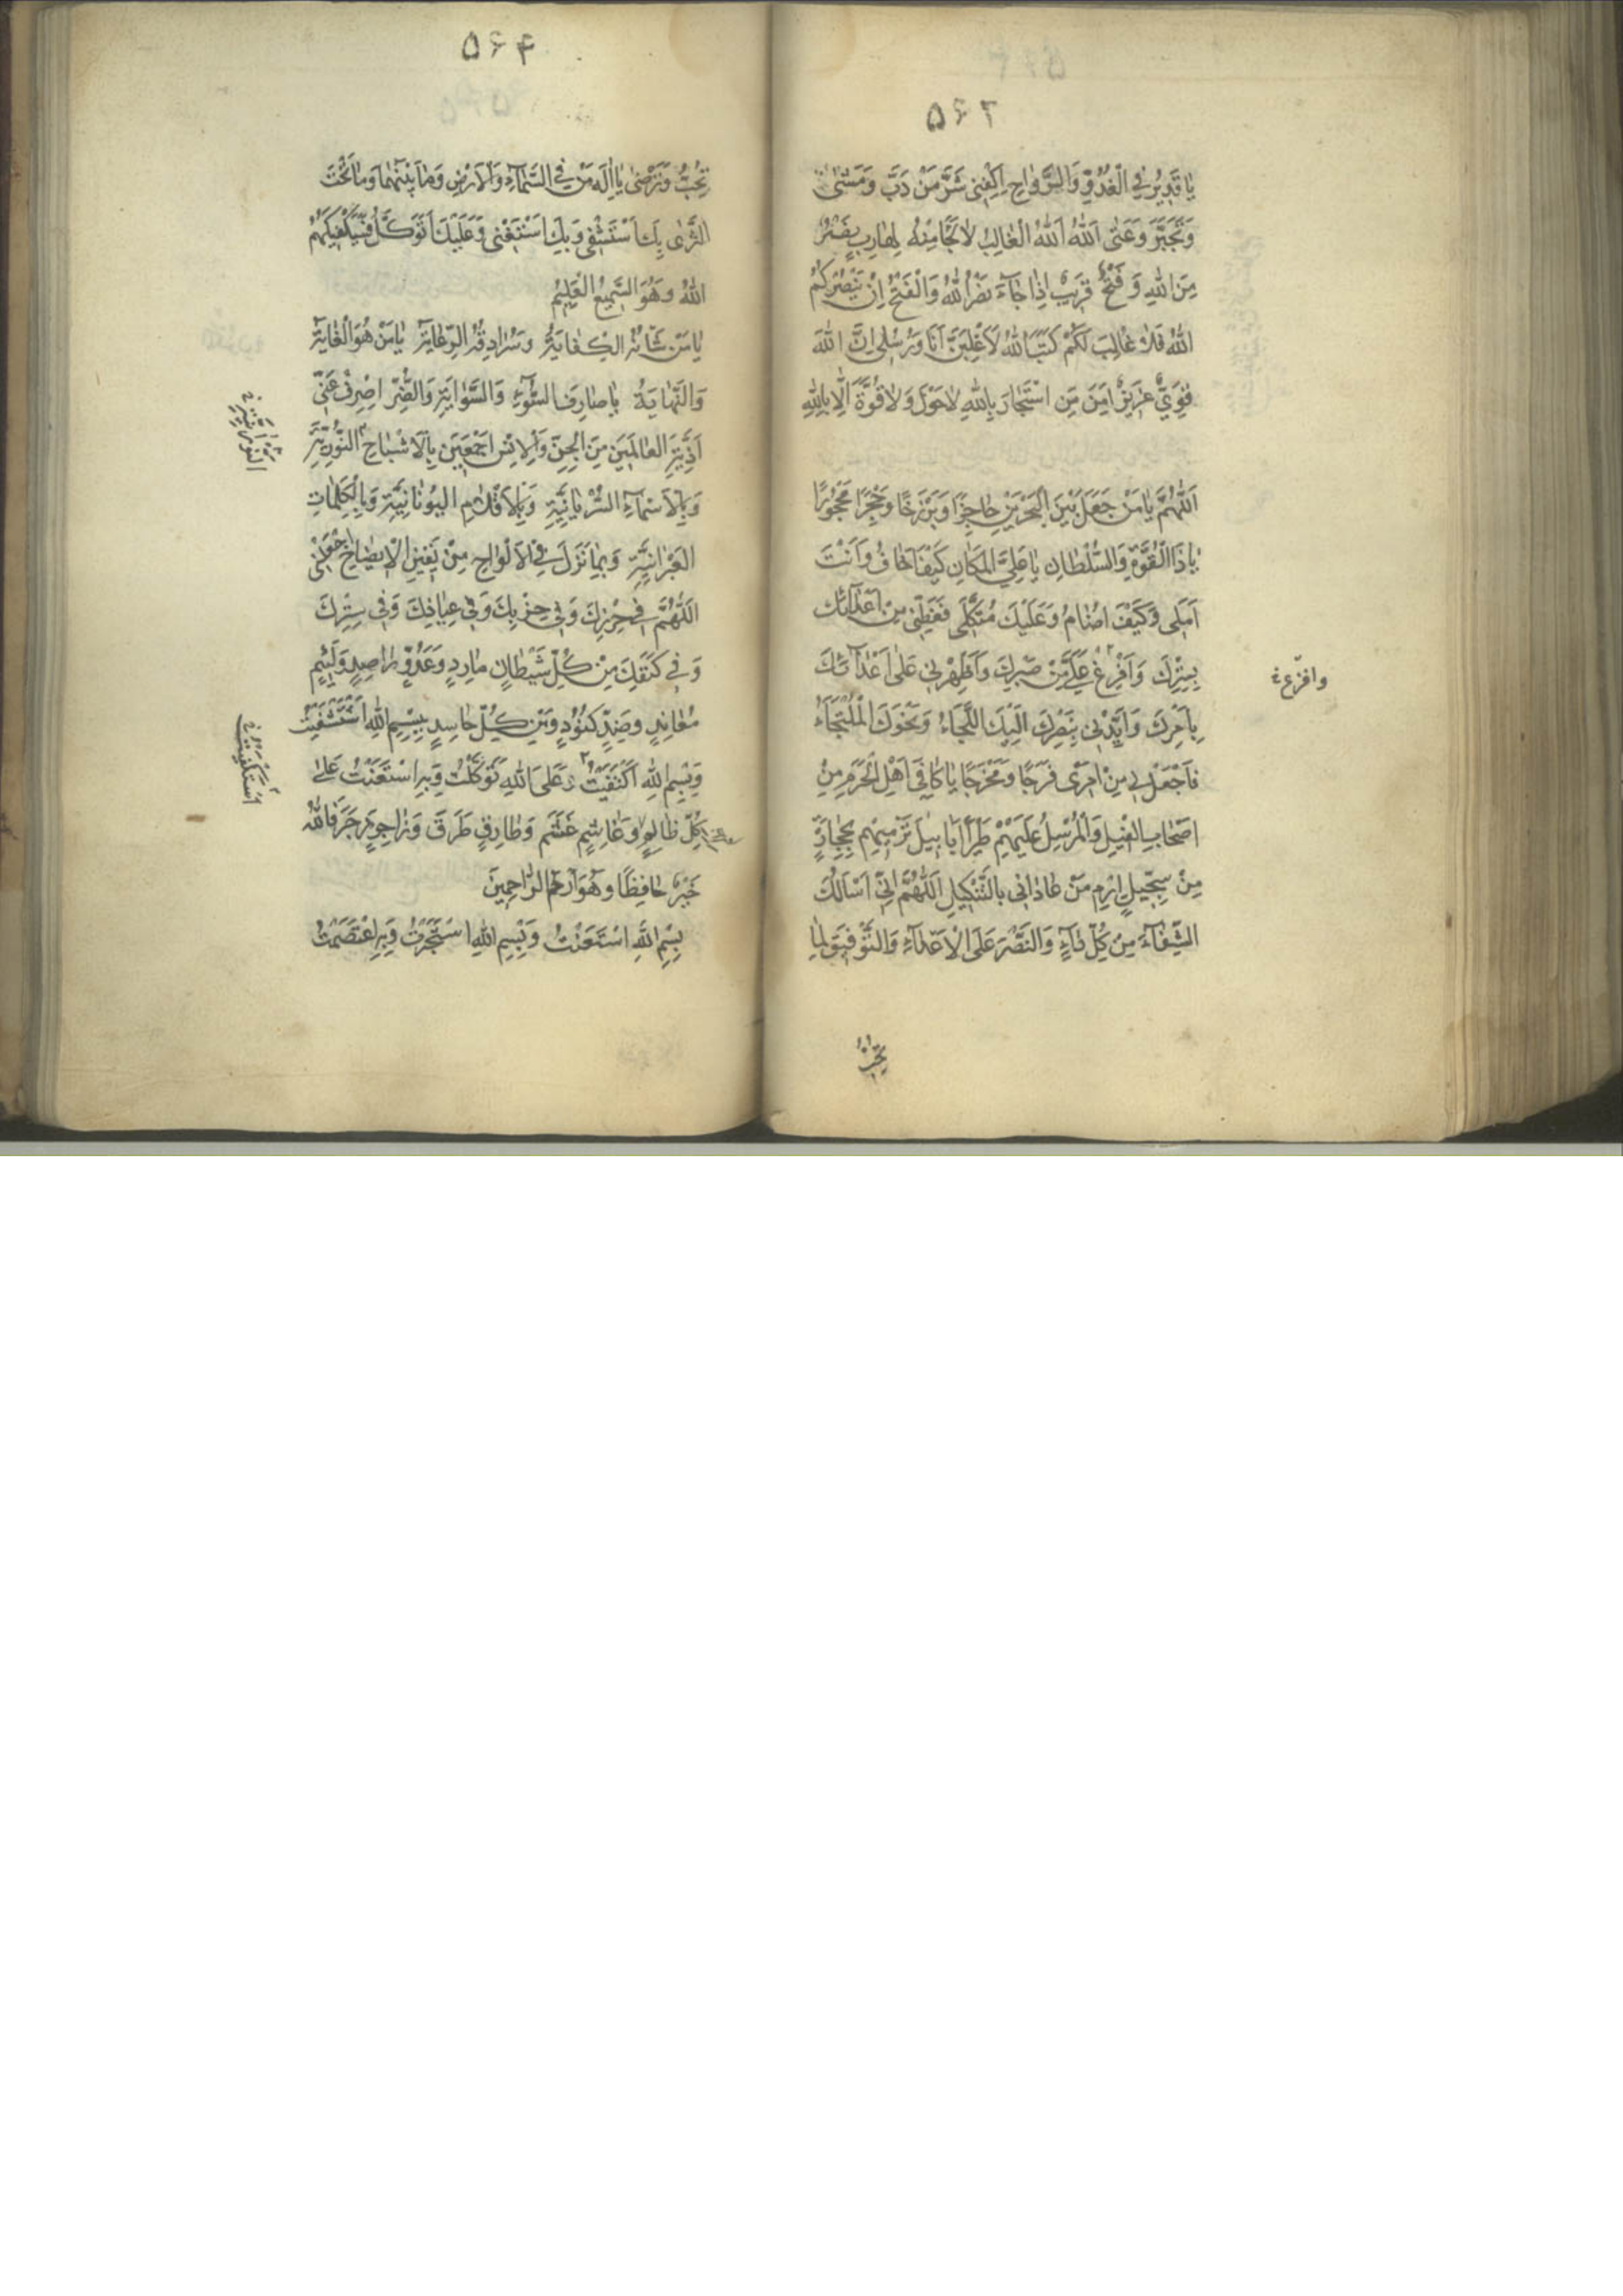 ۵۶۳
يا قَديرُ في الْغُدُوِّ وَالرَّواحِ اِكْفِني شَرَّ مَنْ دَبَّ وَمَشىٰ
وَتَجَبَّرَ وَعَتىٰ اَللهُ اَللهُ الْغالِبُ لا نَجا مِنْهُ لِهارِبٍ نَصْرٌ
مِنَ اللهِ وَفَتْحٌ قَريبٌ اِذا جآءَ نَصْرُ اللهِ وَالْفَتْحُ اِنْ يَنْصُرْكُمُ
اللهُ فَلا غالِبَ لَكُمْ كَتَبَ اللهُ لَاَغْلِبَنَّ اَنَا وَرُسُلي اِنَّ اللهَ
قَوِيٌّ عَزيزٌ اَمِنَ مَنِ اسْتَجارَ بِاللهِ لا حَوْلَ وَلا قُوَّةَ اِلّا بِاللهِ
اَللّٰهُمَّ يا مَنْ جَعَلَ بَيْنَ الْبَحْرَيْنِ حاجِزًا وَبَرْزَخًا وَحِجْرًا مَحْجُورًا
يا ذَا الْقُوَّةِ وَالسُّلْطانِ يا عَلِيَّ الْمَكانِ كَيْفَ اَخافُ وَاَنْتَ
اَمَلي وَكَيْفَ اُضامُ وَعَلَيْكَ مُتَّكَلي فَغَطِّني مِنْ اَعْدآئِكَ
بِسِتْرِكَ وَاَفْرِغْ عَلَيَّ مِنْ صَبْرِكَ وَاَظْهِرْني عَلىٰ اَعْدآئِكَ
وافرغ
بِاَمْرِكَ وَاَيِّدْني بِنَصْرِكَ اِلَيْكَ اللَّجَاءُ وَنَحْوَكَ الْمُلْتَجَاءُ
فَاجْعَلْ لي مِنْ اَمْري فَرَجًا وَمَخْرَجًا يا كافِيَ اَهْلِ الْحَرَمِ مِنْ
اَصْحابِ الْفيلِ وَالْمُرْسِلُ عَلَيْهِمْ طَيْرًا اَبابيلَ تَرْميهِمْ بِحِجارَةٍ
مِنْ سِجّيلٍ اِرْمِ مَنْ عاداني بِالتَّنْكيلِ اَللّٰهُمَّ اِنّي اَسْأَلُكَ
الشِّفآءَ مِنْ كُلِّ دآءٍ وَالنَّصْرَ عَلَى الْاَعْدآءِ وَالتَّوْفيقَ لِما
تُحِبُّ
۵۶۴
تُحِبُّ وَتَرْضىٰ يا اِلٰهَ مَنْ فِي السَّمآءِ وَالْاَرْضِ وَما بَيْنَهُما وَما تَحْتَ
الثَّرىٰ بِكَ اَسْتَشْفي وَبِكَ اَسْتَغْني وَعَلَيْكَ اَتَوَكَّلُ فَسَيَكْفيكَهُمُ
اللهُ وَهُوَ السَّميعُ الْعَليمُ
يا مَنْ شَأْنُهُ الْكِفايَةُ وَسُرادِقُهُ الرِّعايَةُ يا مَنْ هُوَ الْغايَةُ
وَالنِّهايَةُ يا صارِفَ السُّوۤءِ وَالسَّوايَةِ وَالضُّرِّ اِصْرِفْ عَنّي
اَذِيَّةَ الْعالَمينَ مِنَ الْجِنِّ وَالْاِنْسِ اَجْمَعينَ بِالْاَشْباحِ النُّورِيَّةِ
وَبِالْاَسْمآءِ السُّرْيانِيَّةِ وَبِالْاَقْلامِ الْيُونانِيَّةِ وَبِالْكَلِماتِ
الْعِبْرانِيَّةِ وَبِما نَزَلَ فِي الْاَلْواحِ مِنْ يَقينِ الْايضاحِ اجْعَلْني
اَللّٰهُمَّ في حِرْزِكَ وَفي حِزْبِكَ وَفي عِياذِكَ وَفي سِتْرِكَ
وَفي كَنَفِكَ مِنْ كُلِّ شَيْطانٍ مارِدٍ وَعَدُوٍّ راصِدٍ وَلَئيمٍ
مُعانِدٍ وَضِدٍّ كَنُودٍ وَمِنْ كُلِّ حاسِدٍ بِبِسْمِ اللهِ اسْتَشْفَيْتُ
وَبِسْمِ اللهِ اكْتَفَيْتُ وَعَلَى اللهِ تَوَكَّلْتُ وَبِهِ اسْتَعَنْتُ عَلىٰ
اسْتَكْفَيْتُ
كُلِّ ظالِمٍ وَغاشِمٍ غَشَمَ وَطارِقٍ طَرَقَ وَزاجِرٍ زَجَرَ فَاللهُ
خَيْرٌ حافِظًا وَهُوَ اَرْحَمُ الرّاحِمينَ
بِسْمِ اللهِ اسْتَعَنْتُ وَبِبِسْمِ اللهِ اسْتَجَرْتُ وَبِهِ اعْتَصَمْتُ